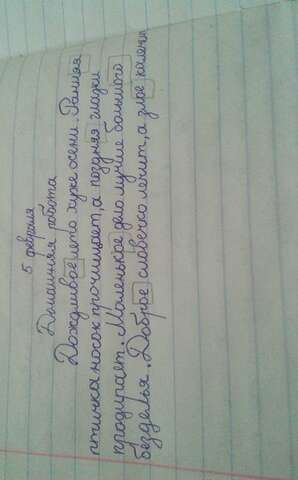 5 февраля
Домашняя работа
Дождливое лето хуже осени. Ранняя
птичка носок прочищает, а поздняя глазки
продирает. Маленькое дело лучше большого
безделья. Доброе словечко лечит, а злое калечит